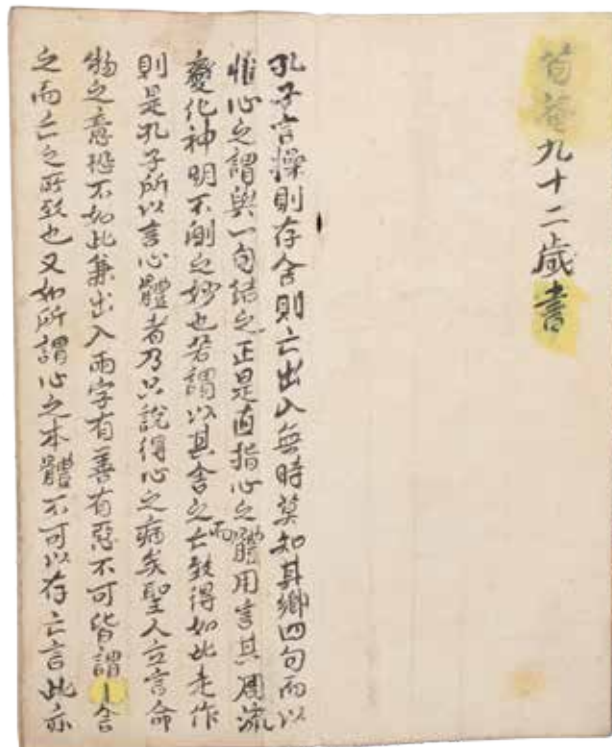 九十二歲書
孔子言操則存舍則亡出入無時莫知其鄉四句而以
惟心之謂與一句結之正是直指心之體用言其周流
變化神明不測之妙也若謂以其舍之而亡致得如此走作
則是孔子所以言心體者乃只說得心之病矣聖人立言命
物之意恐不如此兼出入兩字有善有惡不可皆謂舍
之而亡之所致也又如所謂心之本體不可以存亡言此亦